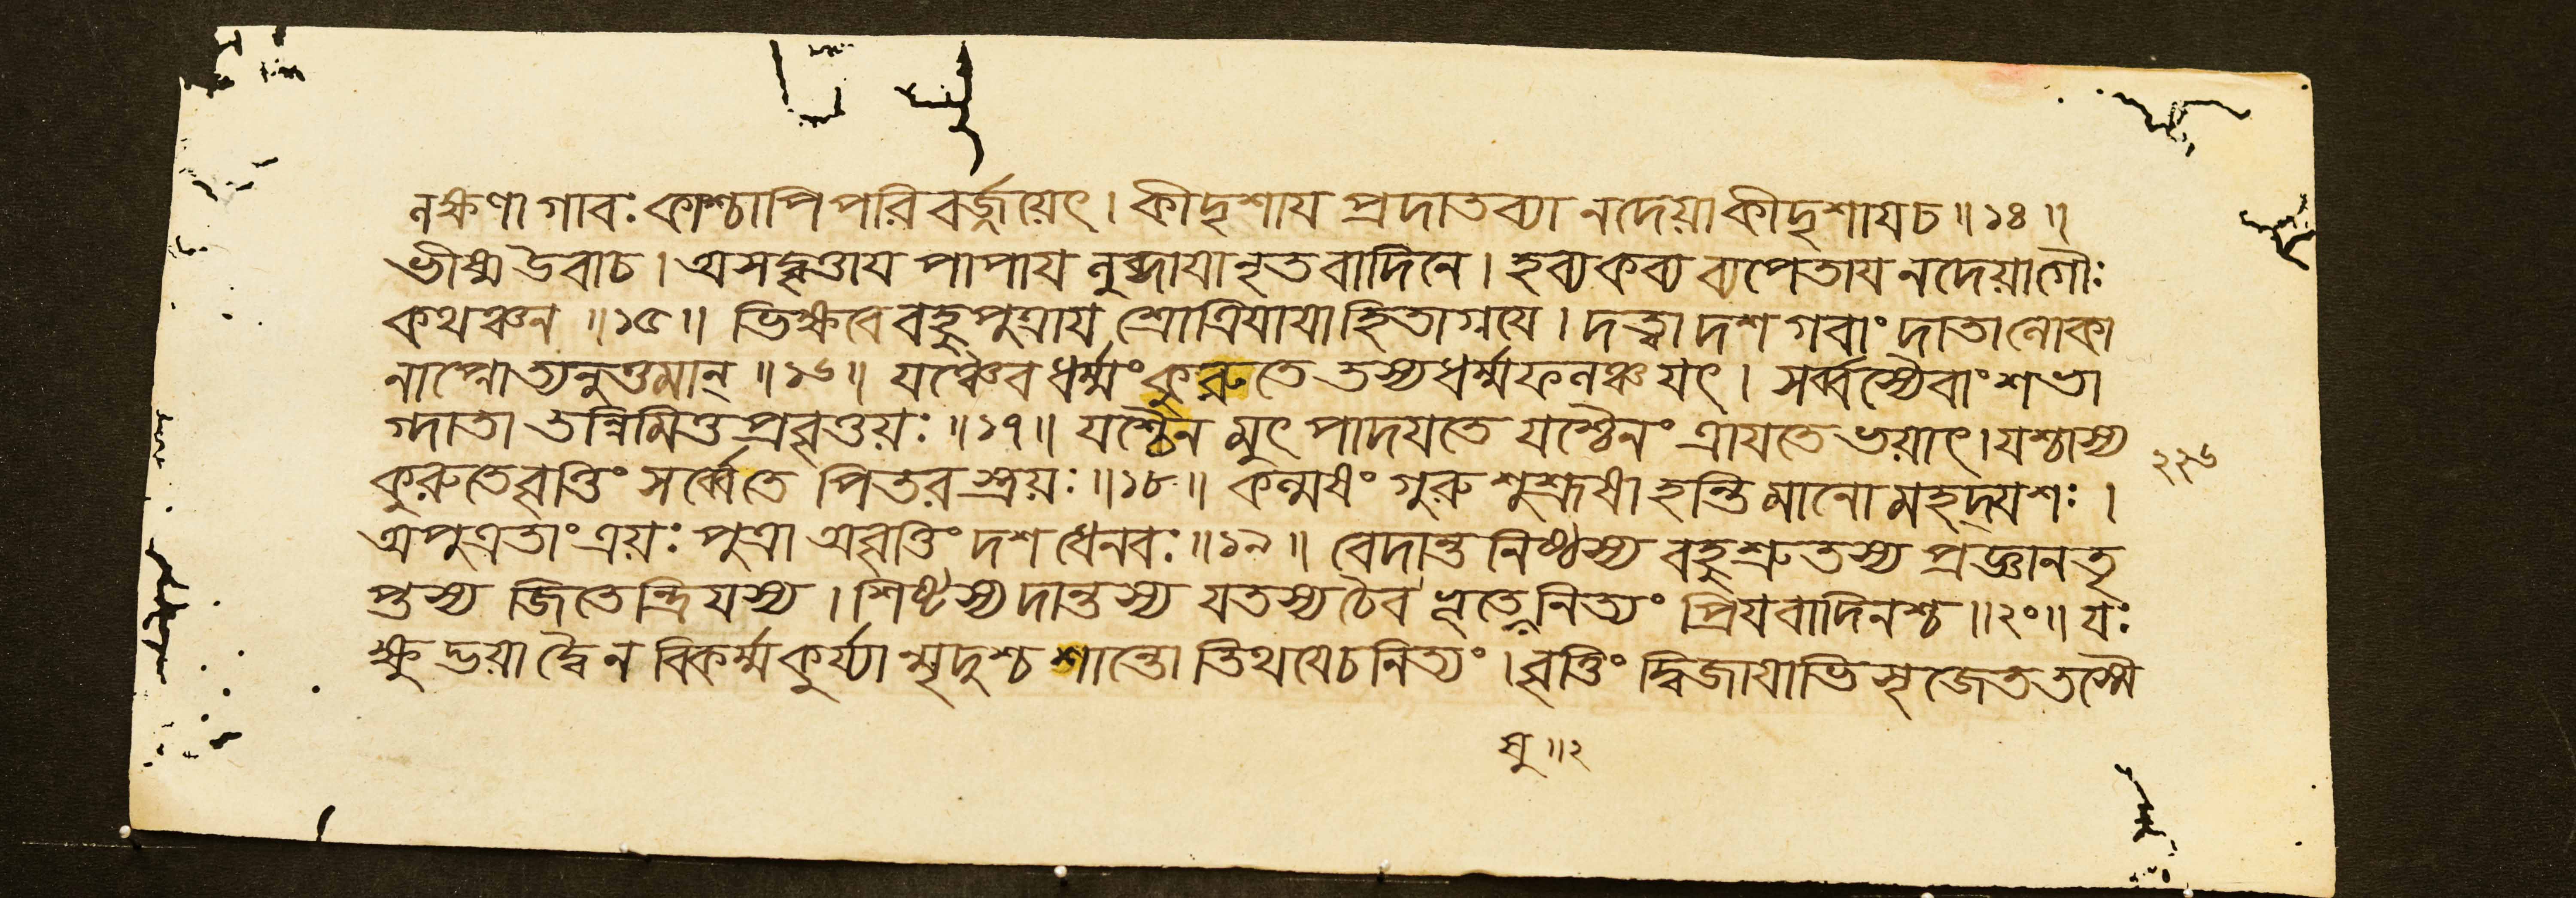 নক্ষণা গাবঃ কাশ্চাপি পরি বর্জ্জয়েৎ। কীদৃশায প্রদাতব্যা নদেয়া কীদৃশাযচ॥১৪॥
ভীষ্ম উৈবাচ। অসদ্বৃত্তায পাপায নুব্ধাযানৃতবাদিনে। হব্যকব্য ব্যপেতায নদেয়াগৌঃ
কথঞ্চন॥১৫॥ ভিক্ষবে বহুপুত্রায শ্রোত্রিযাযাহিতাগ্নযে। দত্ত্বা দশ গবাং দাতা নোকা
নাপ্নোত্যনুত্তমান্॥১৬॥ যঞ্চৈব ধর্ম্মং কুরুতে তস্যধর্ম্মফনঞ্চ যৎ। সর্ব্বস্যৈবাংশভা
গ্দাতা তন্নিমিত্ত প্রবৃত্তয়ঃ॥১৭॥ যশ্চৈন মুৎপাদযতে যশ্চৈনং ত্রাযতে ভয়াৎ।যশ্চাস্য
কুরুতে বৃত্তিং সর্ব্বেতে পিতর স্ত্রয়ঃ॥১৮॥ কন্মষং গুরু শুশ্রূষা হন্তি মানো মহদ্যশঃ।
অপুত্রতাং ত্রয়ঃ পুত্রা অবৃত্তিং দশ ধেনবঃ॥১৯॥ বেদান্ত নিষ্ঠস্য বহুশ্রুতস্য প্রজ্ঞানতৃ
প্তস্য জিতেন্দ্রিযস্য। শিষ্টস্য দান্তস্য যতস্যচৈব ভূতেষু নিত্যং প্রিযবাদিনশ্চ॥২০॥ যঃ
ক্ষুদ্ভয়াদ্বৈন বিকর্ম্ম কুর্য্যান্মৃদুশ্চ শান্তো তিথযেচ নিত্যং। বৃত্তিং দ্বিজাযাভি সৃজেত তস্মৈ
ষু॥২
২২৬